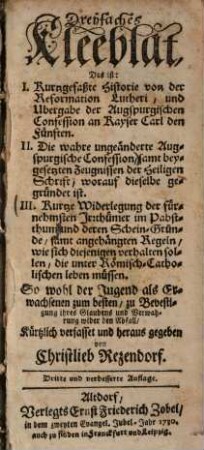 Dreyfaches
Kleeblat,
Das ist:
I. Kurtzgefaßte Historie von der
Reformation Lutheri, und
Ubergabe der Augspurgischen
Confession an Kayser Carl den
Fünften.
II. Die wahre ungeänderte Aug-
spurgische Confession, samt bey-
gesetzten Zeugnissen der Heiligen
Schrift, worauf dieselbe ge-
gründet ist.
III. Kurtze Widerlegung der für-
nehmsten Irrthümer im Pabst-
thum und deren Schein-Grün-
de, samt angehängten Regeln,
wie sich diejenigen verhalten sol-
len, die unter Römisch-Catho-
lischen leben müssen.
So wohl der Jugend als Er-
wachsenen zum besten, zu Bevesti-
gung ihres Glaubens und Verwah-
rung wider den Abfall,
Kürtzlich verfasset und heraus gegeben
von
Christlieb Rezendorf.
Dritte und verbesserte Auflage.
Altdorf,
Verlegts Ernst Friederich Zobel,
in dem zweyten Evangel. Jubel-Jahr 1730.
auch zu finden in Franckfurt und Leipzig.